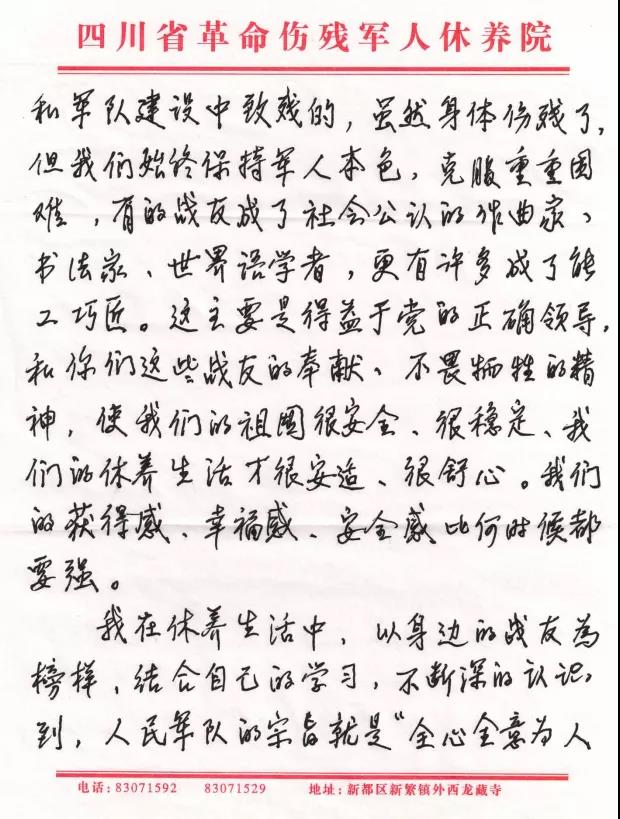 四川省革命伤残军人休养院
和军队建设中致残的，虽然身体伤残了，
但我们始终保持军人本色，克服重重困
难，有的战友成了社会公认的作曲家、
书法家、世界语学者，更有许多成了能
工巧匠。这主要是得益于党的正确领导，
和你们这些战友的奉献、不畏牺牲的精
神，使我们的祖国很安全、很稳定、我
们的休养生活才很安适、很舒心。我们
的获得感、幸福感、安全感比何时候都
要强。
我在休养生活中，以身边的战友為
榜样，结合自己的学习，不断深的认识
到，人民军队的宗旨就是“全心全意为人
电话：83071592 83071529 地址：新都区新繁镇外西龙藏寺